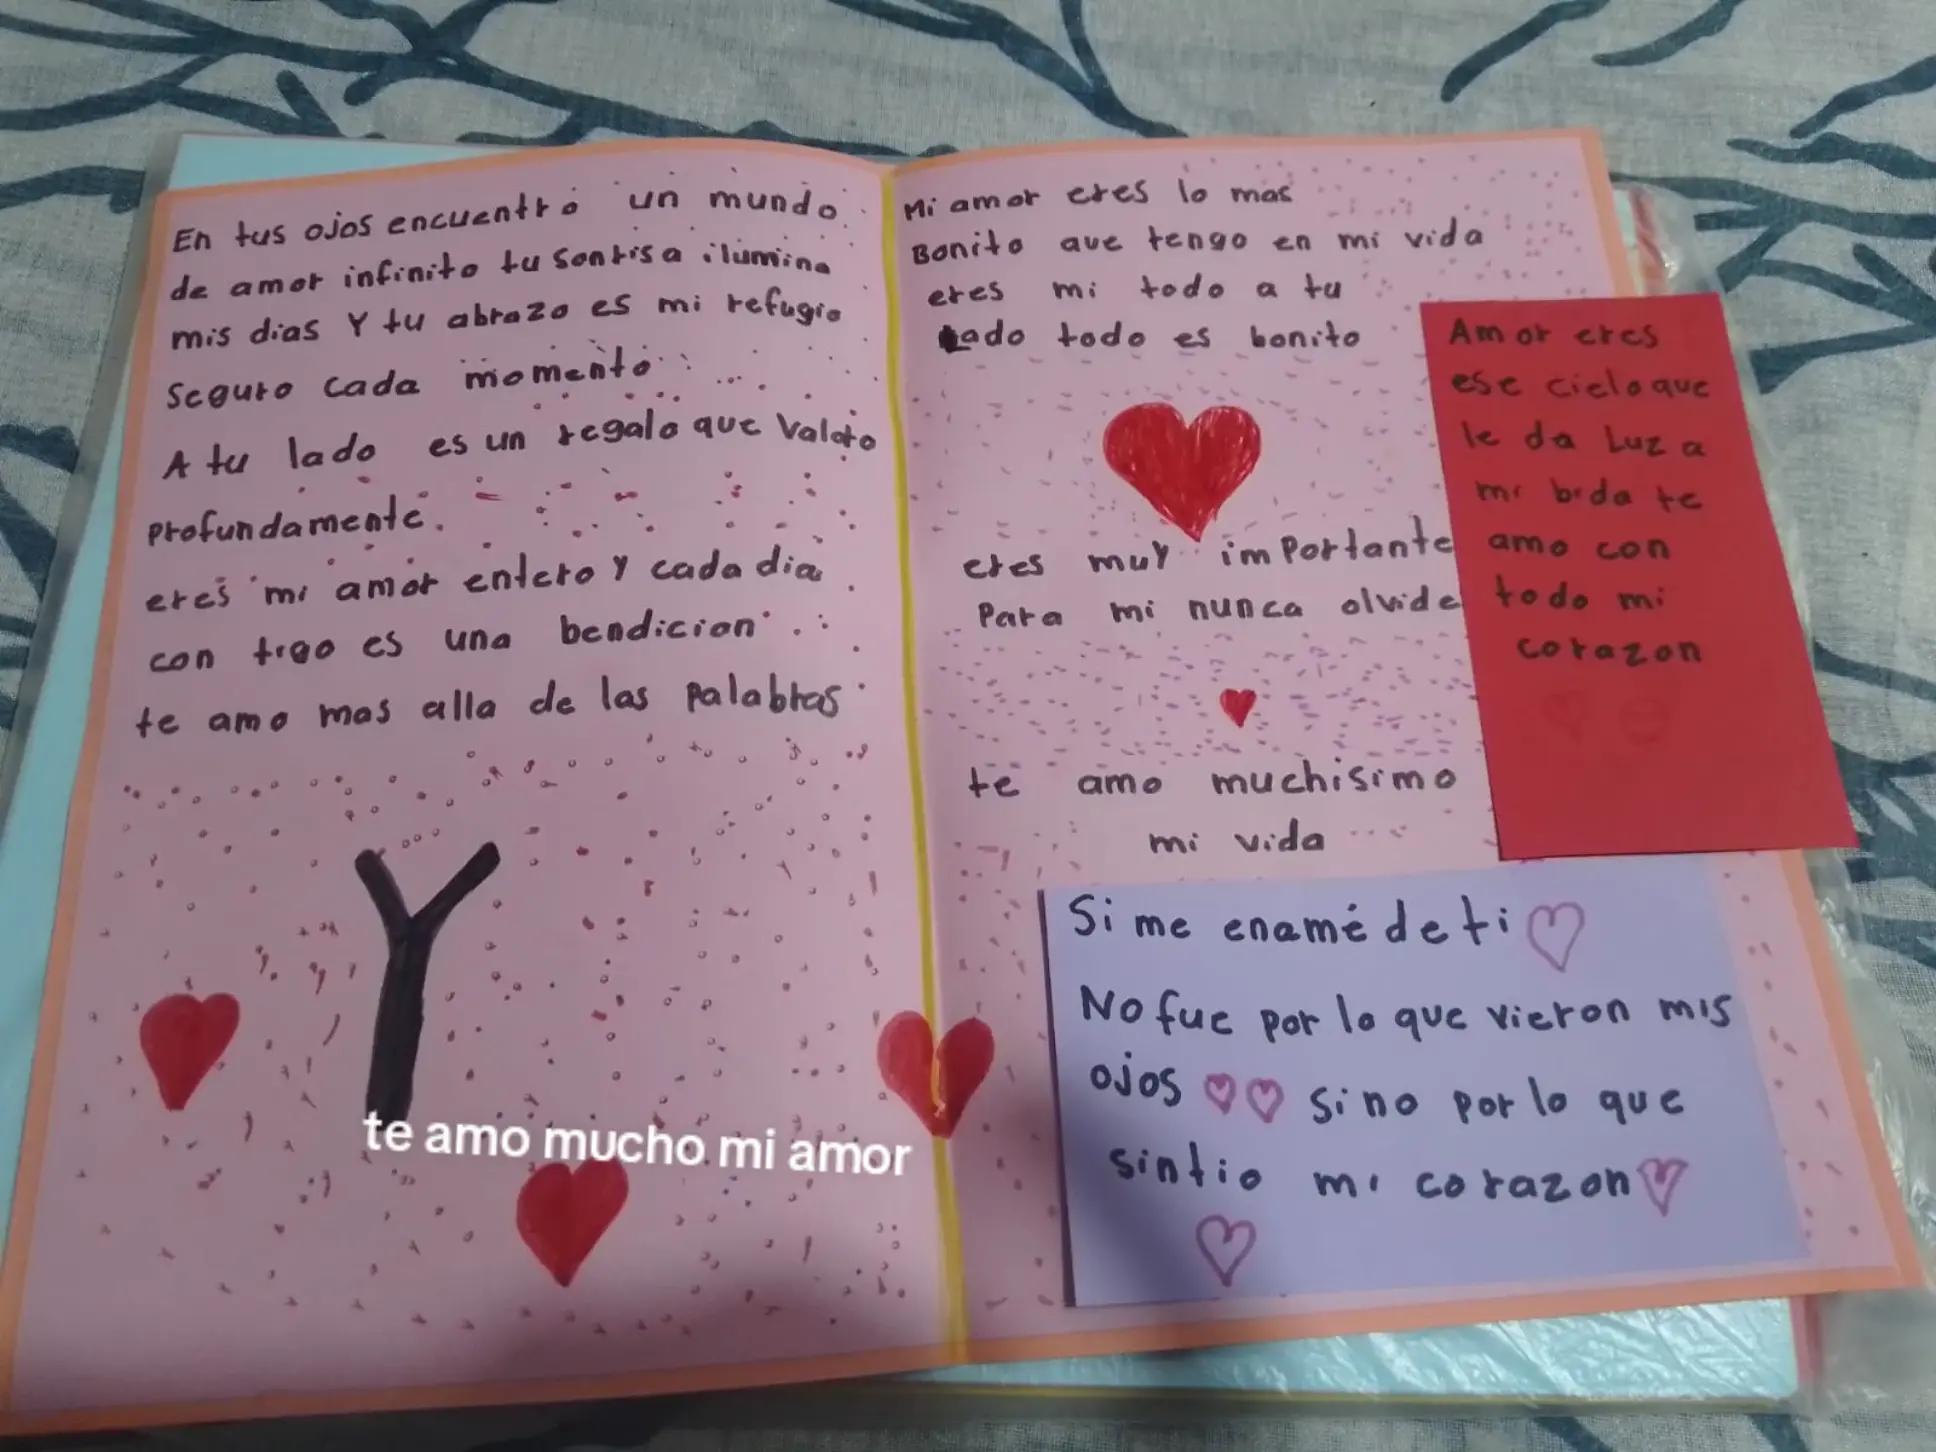 En tus ojos encuentro un mundo
de amor infinito tu sonrisa ilumina
mis dias Y tu abrazo es mi refugio
seguro cada momento
A tu lado es un regalo que Valoro
profundamente.
eres mi amor entero Y cada dia
con tigo es una bendicion
te amo mas alla de las palabras
Y
te amo mucho mi amor
Mi amor eres lo mas
Bonito que tengo en mi vida
eres mi todo a tu
Lado todo es bonito
eres muY imPortante
Para mi nunca olvide
te amo muchisimo
mi vida
Amor eres
ese cielo que
le da Luz a
mi bida te
amo con
todo mi
corazon
Si me enamé de ti
No fue por lo que vieron mis
ojos sino por lo que
sintio mi corazon